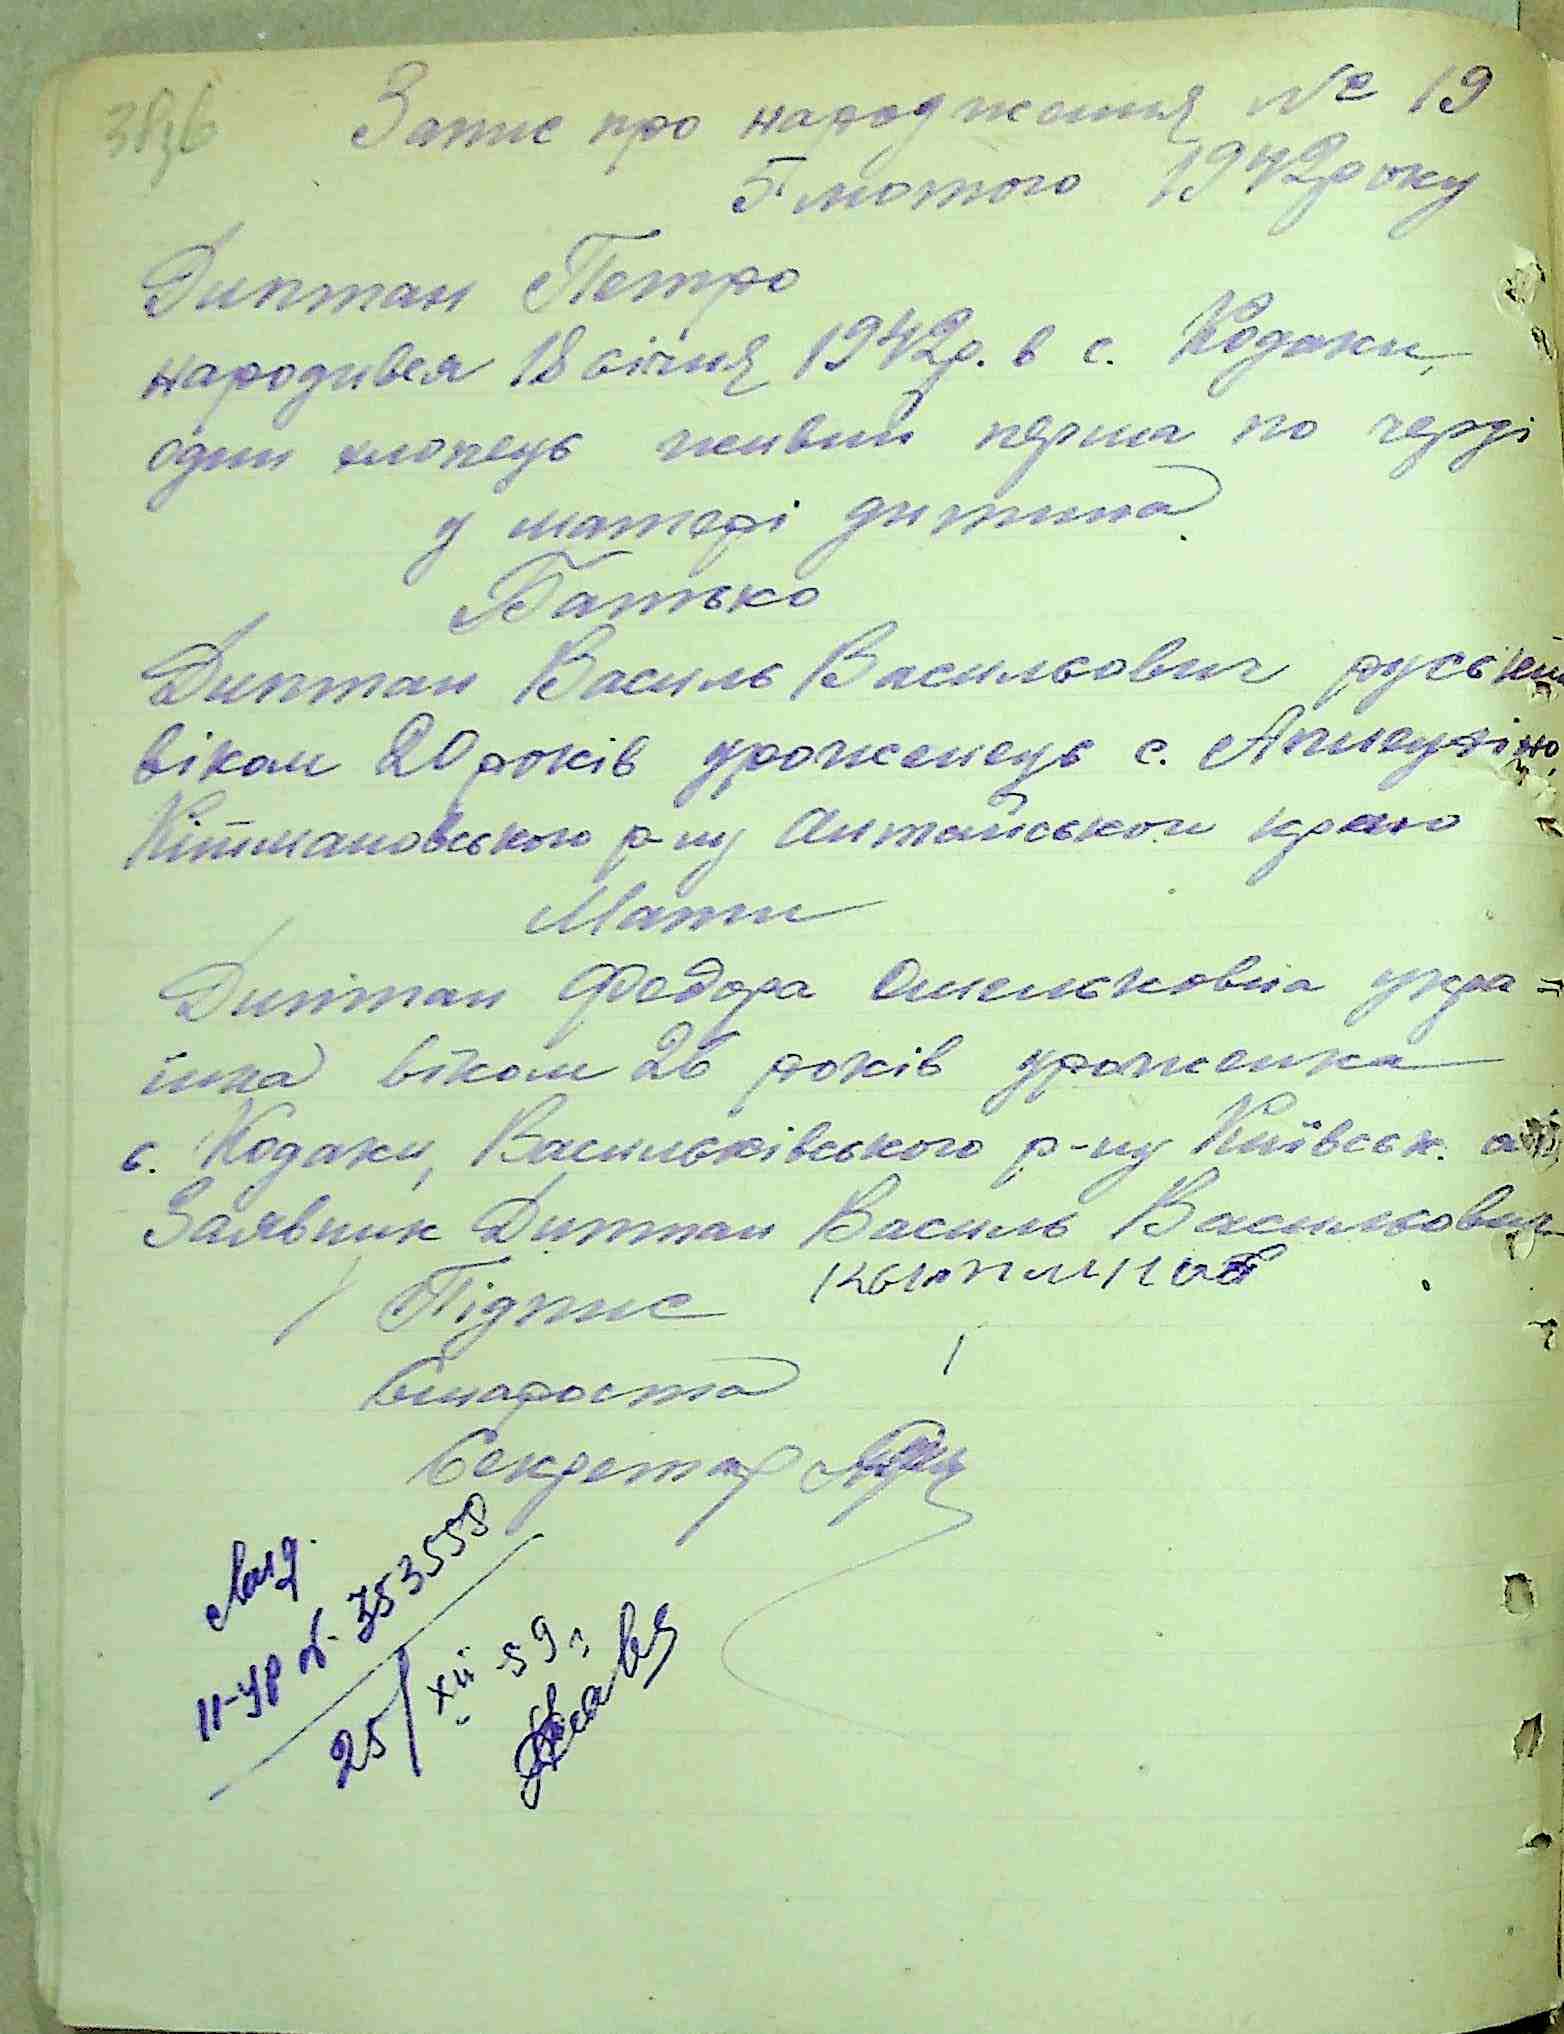 Запис про народження № 19
5 лютого 1942 року
Диптан Петро
народився 18 січня 1942р. в с. Кодаки,
один хлопець живий перша по черзі
у матері дитина.
Батько
Диптан Василь Васильович руський
віком 20 років уроженець с.
Китмановського р-ну Алтайського краю
Мати
Диптан Федора Омельковна укра=
їнка віком 26 років уроженка
с. Кодаки, Васильківського р-ну Київськ. об
Заявник Диптан Василь Васильович
Підпис
Староста
Секретар
II-УР № 353558
25/XII-59г